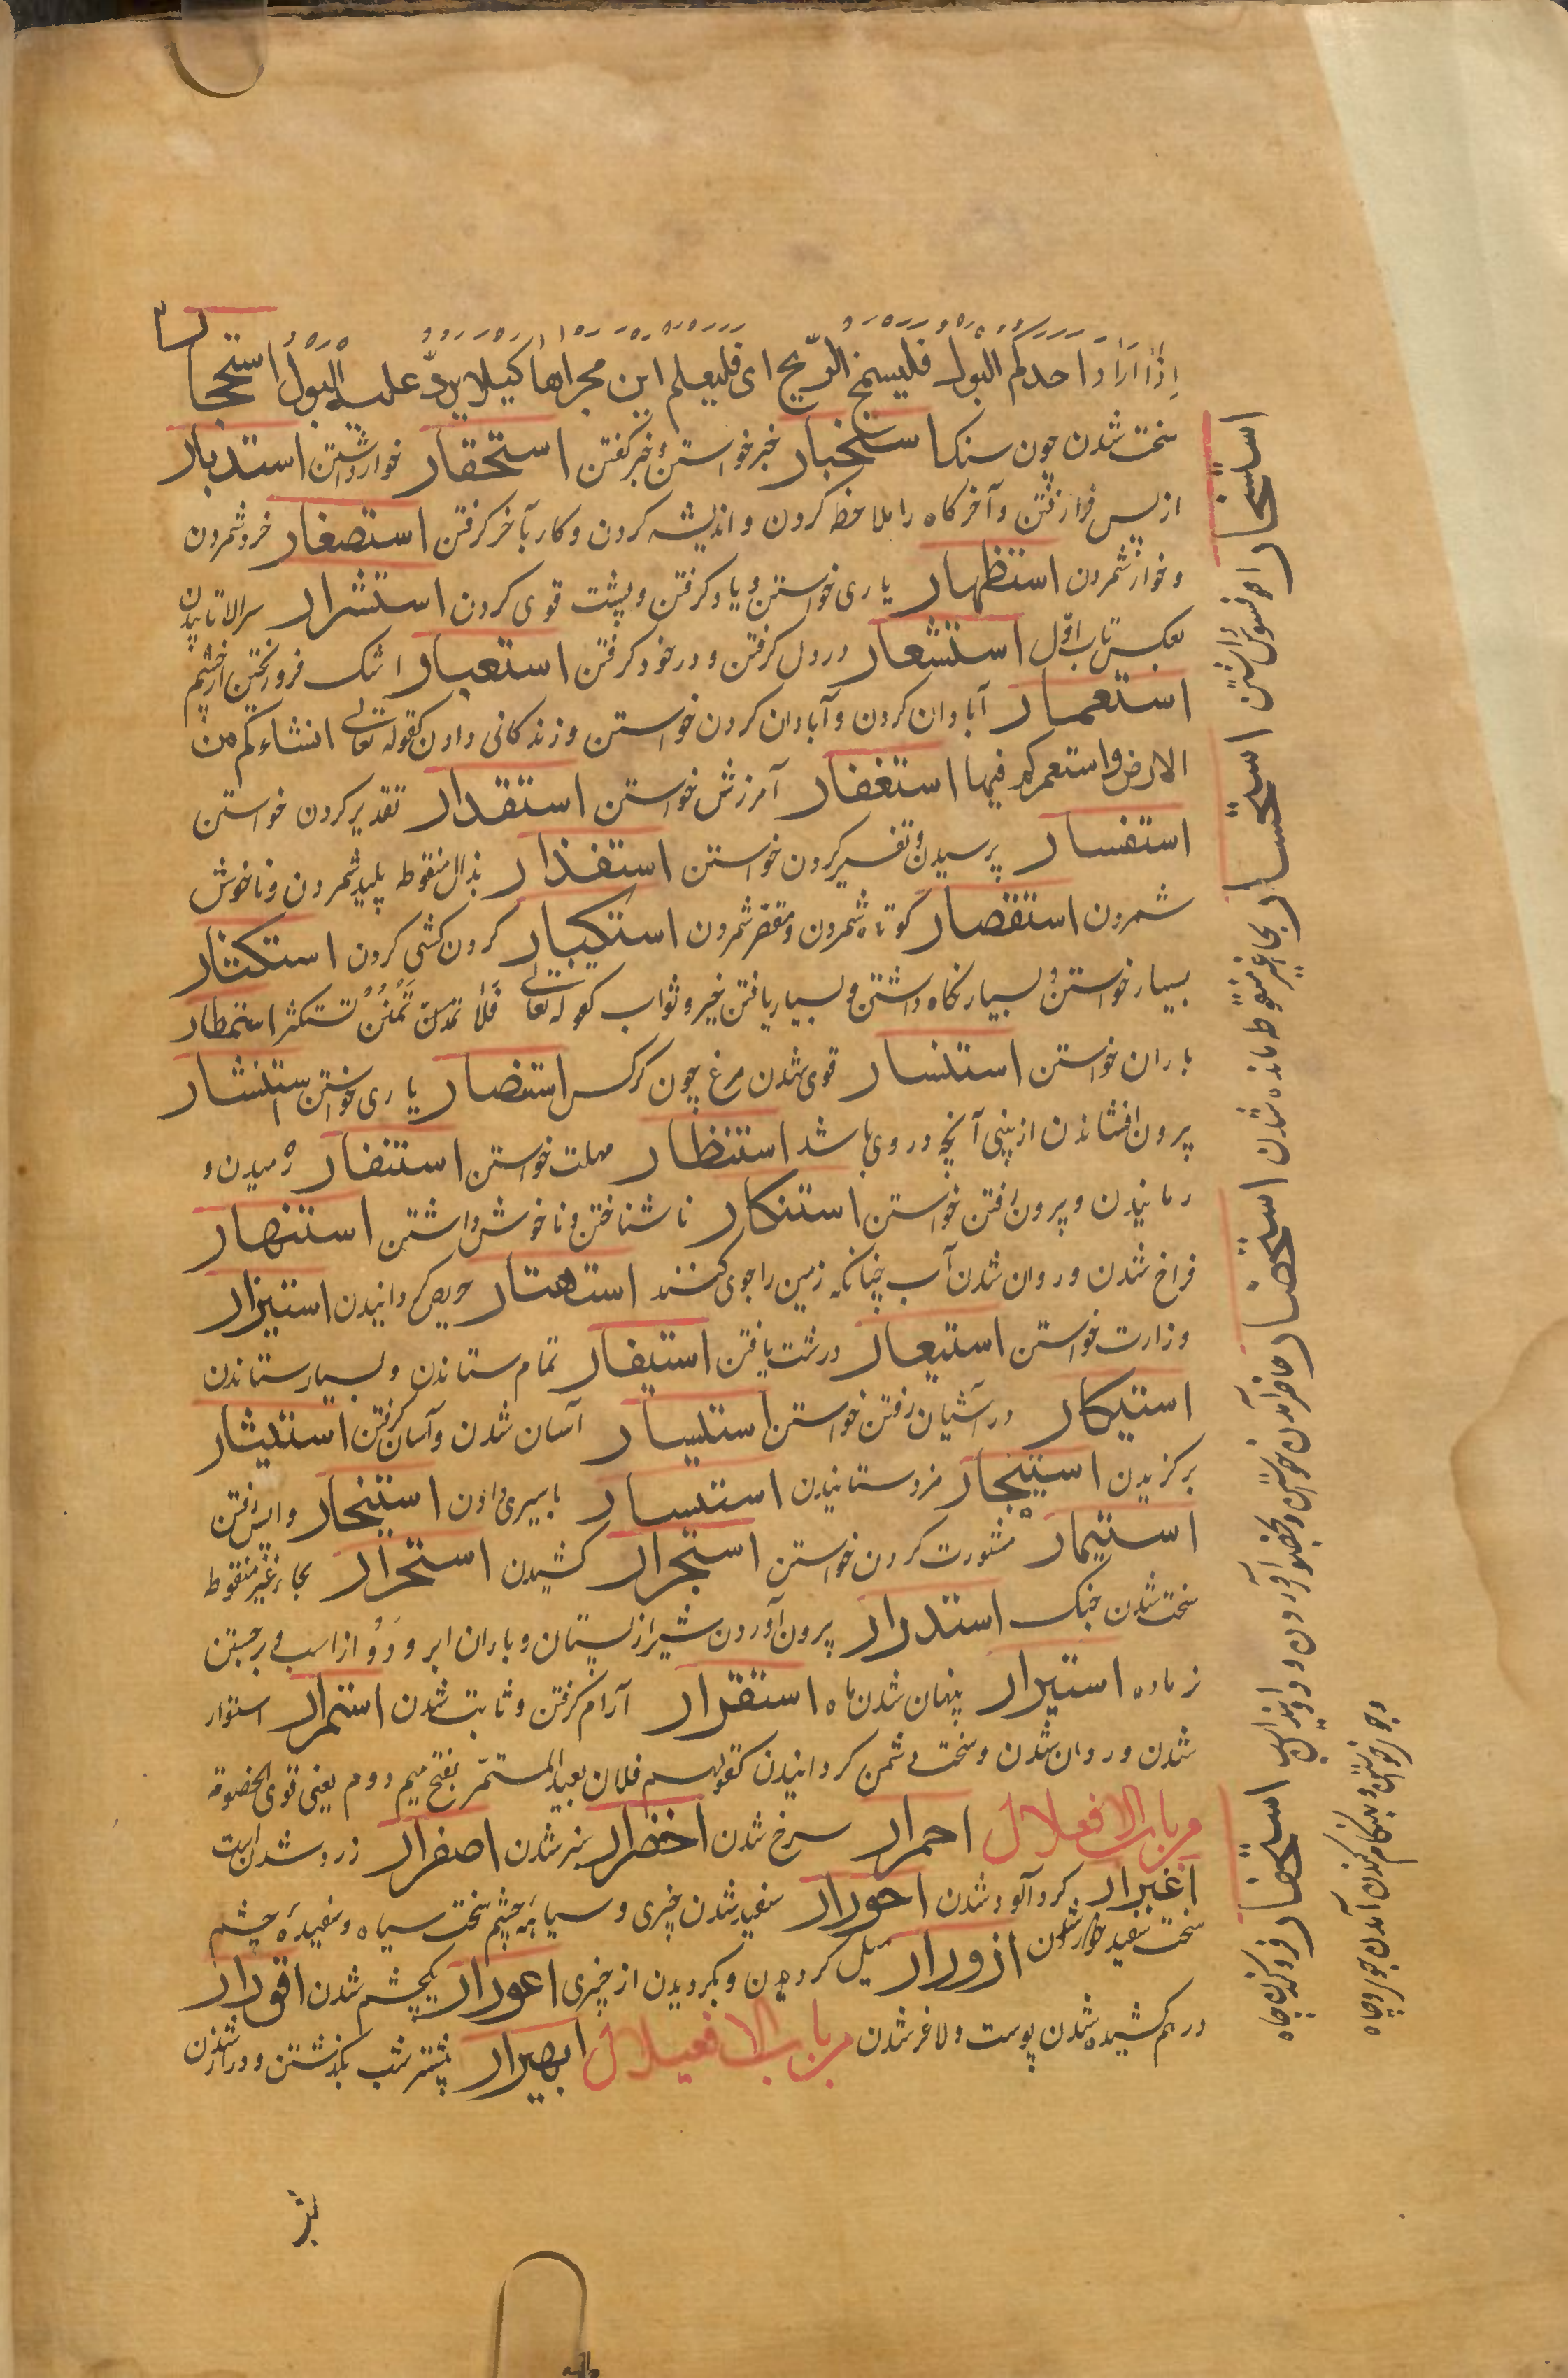 اِذَا اَرَادَ احدکم البول فلیستمخر الرّیح ای فلیعلم این مجراها کیلا یردّ علیه البول استحجار
سخت شدن چون سنک استخبار خبر خواستن و خبر کفتن استحقار خوار داشتن استدبار
از پس فرا رفتن و آخر کاه را ملاحظه کردن و اندیشه کردن و کار بآخر کرفتن استصغار خرد شمردن
و خوار شمردن استظهار یاری خواستن و یاد کرفتن و پشت قوی کردن استشزار سر بالا تابیدن
بعکس تاب اوّل استشعار در دل کرفتن و در خود کرفتن استعبار اشک فرو ریختن از چشم
استعمار آبادان کردن و آبادان کردن خواستن و زندکانی دادن کقوله تعالی انشاءکم من
الارض و استعمرکم فیها استغفار آمرزش خواستن استقدار تقدیر کردن خواستن
استفسار پرسیدن و تفسیر کردن خواستن استقذار بذال منقوطه پلید شمردن و ناخوش
شمردن استقصار کوتاه شمردن و مقصّر شمردن استکبار کردن کشی کردن استکثار
بسیار خواستن و بسیار نکاه داشتن و بسیار یافتن خیر و ثواب کقوله تعالی فلا تمنن تستکثر استمطار
باران خواستن استنسار قوی شدن مرغ چون کرکس استنصار یاری خواستن استنشار
بیرون افشاندن از بینی آنچه در وی باشد استنظار مهلت خواستن استنفار رمیدن و
رمانیدن و بیرون رفتن خواستن استنکار ناشناختن و ناخوش داشتن استنهار
فراخ شدن و روان شدن آب چنانکه زمین را جوی کنند استهتار حریص کردانیدن استیزار
وزارت خواستن استیعار درشت یافتن استیفار تمام ستاندن و بسیار ستاندن
استیکار در آشیان رفتن خواستن استیسار آسان شدن و آسان کرفتن استیثار
برکزیدن استیجار مزد ستانیدن استیسار باسیری دادن استیخار واپس رفتن
استیمار مشورت کردن خواستن استجرار کشیدن استحرار بحاء غیر منقوطه
سخت شدن جنک استدرار بیرون آوردن شیر از پستان و باران ابر و دَوُ از اسب و برجستن
نر ماده استسرار پنهان شدن ماه استقرار آرام کرفتن و ثابت شدن استمرار استوار
شدن و روان شدن و سخت دشمن کردانیدن کقولهم فلان بعید المستمرّ بفتح میم دوم یعنی قوی الخصومة
من باب الافعلال احمرار سرخ شدن اخضرار سبز شدن اصفرار زرد شدن است
اغبرار کرد آلود شدن احورار سفید شدن چیزی و سیاهیٔ چشم سخت سیاه و سفیدهٔ چشم
سخت سفید شدن ازورار میل کردن و بکردیدن از چیزی اعورار یکچشم شدن اقورار
در هم کشیده شدن پوست و لاغر شدن من باب الافعیلال ابهیرار بیشتر شب بکذشتن و دراز شدن
استسخار افسوس داشتن استحسار بحاء غیر منقوطه مانده شدن استحضار حاضر آمدن خواستن و بحضور آوردن و دوانیدن اسب استحفار فرو کندن چاه
و جوی خواستن و بهنکام کندن آمدن جوی و چاه